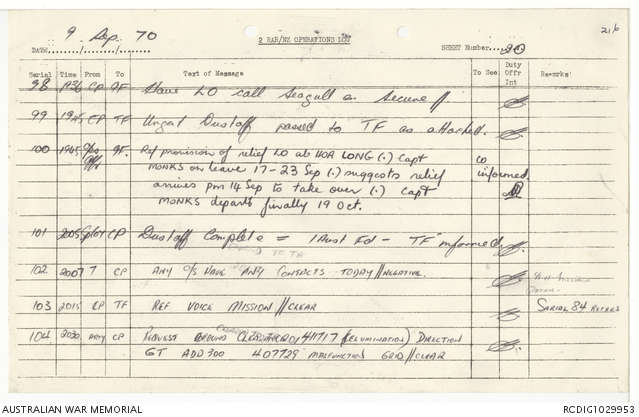 216
9 Sep 70
2 RAR/NZ OPERATIONS LOG
DATE
SHEET Number
Serial Time From To Text of Message To See Duty Offr Int Remarks
98 1936 CP TF Have LO call Seagull on Secure //
99 1945 CP TF Urgent Dustoff passed to TF as attached.
100 1945 TF. Ref provision of relief LO at HOA LONG (.) Capt CO
MONKS on leave 17-23 Sep (.) suggests relief informed.
arrives pm 14 Sep to take over (.) Capt
MONKS departs finally 19 Oct.
101 2005 CP Dustoff Complete = 1 Aust Ed - TF informed.
102 2007 T CP ANY C/S HAVE ANY CONTACTS TODAY // NEGATIVE.
103 2015 CP TF REF VOICE MISSION // CLEAR SERIAL 84 REFERS
104 2030 CP REQUEST GROUND CLEARANCE 411717 (ILLUMINATION) DIRECTION
GT ADD 700 407729 MALFUNCTION GRID // CLEAR
AUSTRALIAN WAR MEMORIAL
RCDIG1029953